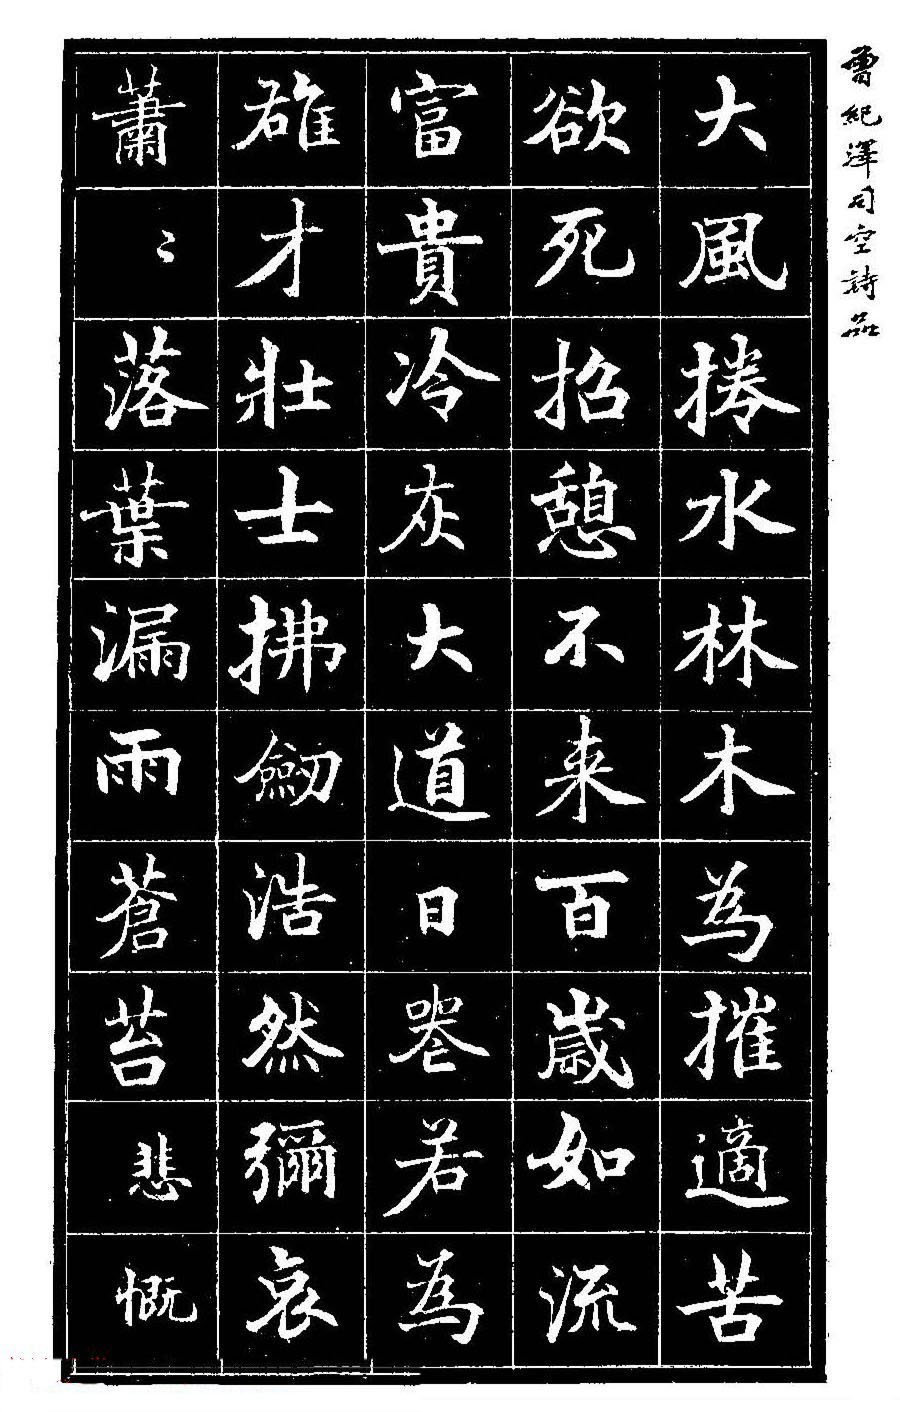 曾紀澤司空詩品
大風捲水林木為摧適苦
欲死招憩不来百歲如流
富貴冷灰大道日喪若為
雄才壯士拂劒浩然彌哀
蕭〻落葉漏雨蒼苔悲慨